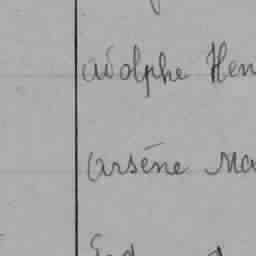 Adolphe Hen
Arsène Ma